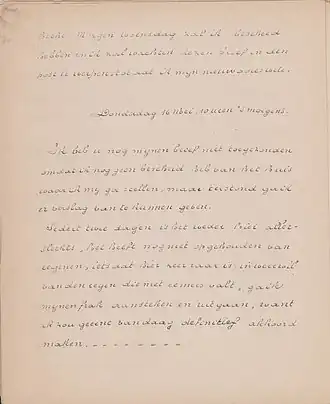 zal ik bescheid
hebben en ik zal wachten dezen brief in den
post te werpen tot dat ik mijn nieuw adres wete.
Donderdag 16 Mei, 10 uren 's morgens.
Ik heb u nog mijnen brief niet toegezonden
omdat ik nog geen bescheid heb van het huis
waar ik mij ga stellen, maar toestond ga ik
er verslag van te kunnen geven.
Sedert twee dagen is het weder hier aller-
slechts, het heeft nog niet opgehouden van
regenen, iets dat hier zeer raar is, in weerwil
van den regen die met emmers valt, ga ik
mijnen frak aansteken en uitgaan, want
ik zou geerne vandaag definitief akkoord
maken. - - - - - - - -